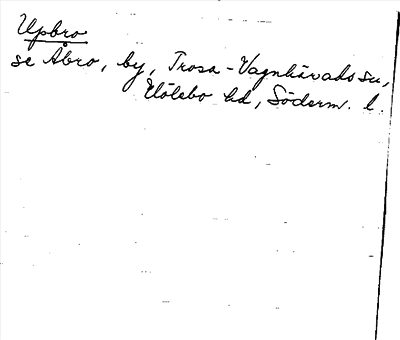 Upbro
se Åbro, by, Trosa-Vagnhärads sn,
Hölebo hd, Söderm. l.